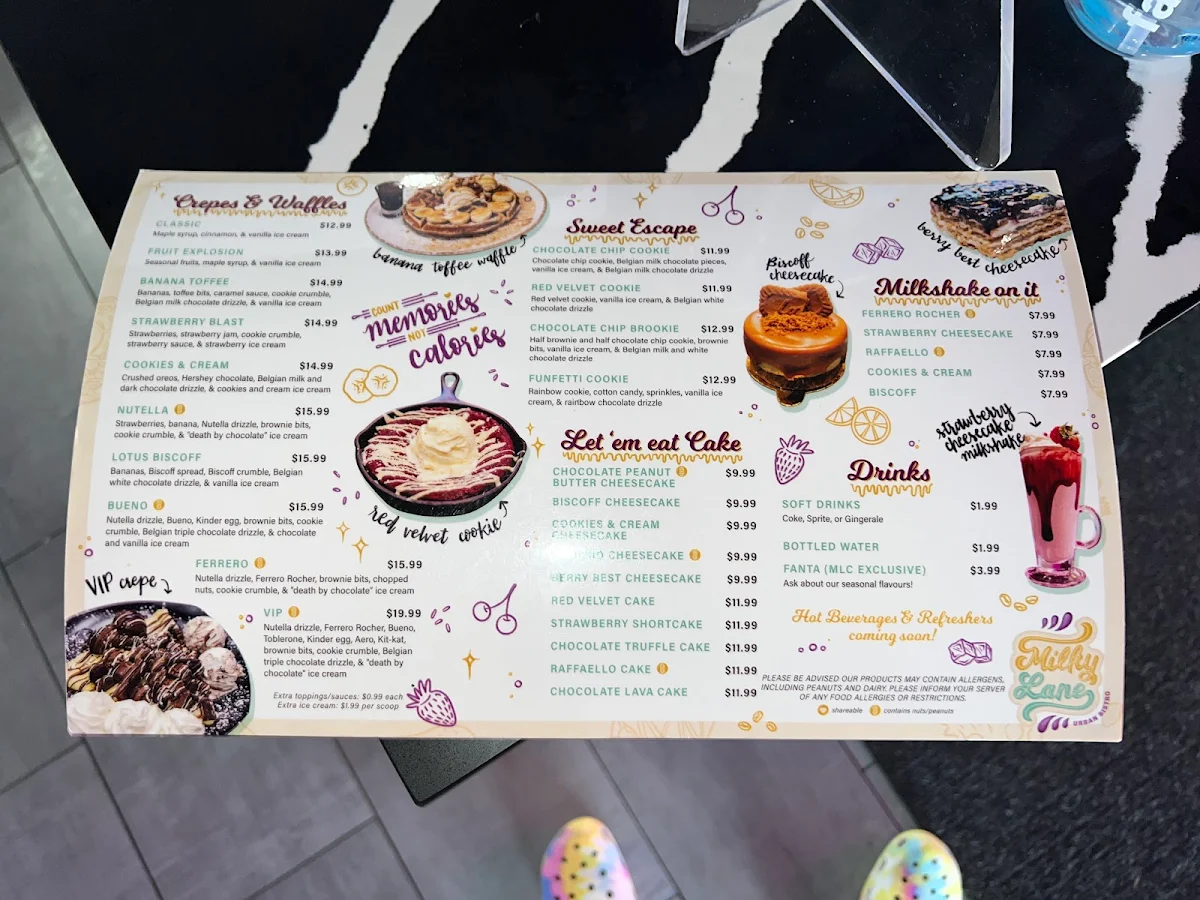 Crepes & Waffles
CLASSIC $12.99
Maple syrup, cinnamon, & vanilla ice cream
FRUIT EXPLOSION $13.99
Seasonal fruits, maple syrup, & vanilla ice cream
BANANA TOFFEE $14.99
Bananas, toffee bits, caramel sauce, cookie crumble,
Belgian milk chocolate drizzle, & vanilla ice cream
STRAWBERRY BLAST $14.99
Strawberries, strawberry jam, cookie crumble,
strawberry sauce, & strawberry ice cream
COOKIES & CREAM $14.99
Crushed oreos, Hershey chocolate, Belgian milk and
dark chocolate drizzle, & cookies and cream ice cream
NUTELLA $15.99
Strawberries, banana, Nutella drizzle, brownie bits,
cookie crumble, & "death by chocolate" ice cream
LOTUS BISCOFF $15.99
Bananas, Biscoff spread, Biscoff crumble, Belgian
white chocolate drizzle, & vanilla ice cream
BUENO $15.99
Nutella drizzle, Bueno, Kinder egg, brownie bits, cookie
crumble, Belgian triple chocolate drizzle, & chocolate
and vanilla ice cream
FERRERO $15.99
Nutella drizzle, Ferrero Rocher, brownie bits, chopped
nuts, cookie crumble, & "death by chocolate" ice cream
VIP $19.99
Nutella drizzle, Ferrero Rocher, Bueno,
Toblerone, Kinder egg, Aero, Kit-kat,
brownie bits, cookie crumble, Belgian
triple chocolate drizzle, & "death by
chocolate" ice cream
Extra toppings/sauces: $0.99 each
Extra ice cream: $1.99 per scoop
VIP crepe
banana toffee waffle
COUNT
memories
NOT
calories
red velvet cookie
Sweet Escape
CHOCOLATE CHIP COOKIE $11.99
Chocolate chip cookie, Belgian milk chocolate pieces,
vanilla ice cream, & Belgian milk chocolate drizzle
RED VELVET COOKIE $11.99
Red velvet cookie, vanilla ice cream, & Belgian white
chocolate drizzle
CHOCOLATE CHIP BROOKIE $12.99
Half brownie and half chocolate chip cookie, brownie
bits, vanilla ice cream, & Belgian milk and white
chocolate drizzle
FUNFETTI COOKIE $12.99
Rainbow cookie, cotton candy, sprinkles, vanilla ice
cream, & rainbow chocolate drizzle
Let 'em eat Cake
CHOCOLATE PEANUT $9.99
BUTTER CHEESECAKE
BISCOFF CHEESECAKE $9.99
COOKIES & CREAM $9.99
CHEESECAKE
CHEESECAKE $9.99
BERRY BEST CHEESECAKE $9.99
RED VELVET CAKE $11.99
STRAWBERRY SHORTCAKE $11.99
CHOCOLATE TRUFFLE CAKE $11.99
RAFFAELLO CAKE $11.99
CHOCOLATE LAVA CAKE $11.99
Biscoff
cheesecake
berry best cheesecake
Milkshake on it
FERRERO ROCHER $7.99
STRAWBERRY CHEESECAKE $7.99
RAFFAELLO $7.99
COOKIES & CREAM $7.99
BISCOFF $7.99
strawberry
cheesecake
milkshake
Drinks
SOFT DRINKS $1.99
Coke, Sprite, or Gingerale
BOTTLED WATER $1.99
FANTA (MLC EXCLUSIVE) $3.99
Ask about our seasonal flavours!
Hot Beverages & Refreshers
coming soon!
PLEASE BE ADVISED OUR PRODUCTS MAY CONTAIN ALLERGENS,
INCLUDING PEANUTS AND DAIRY. PLEASE INFORM YOUR SERVER
OF ANY FOOD ALLERGIES OR RESTRICTIONS.
shareable contains nuts/peanuts
Milky
Lane
URBAN BISTRO
fa